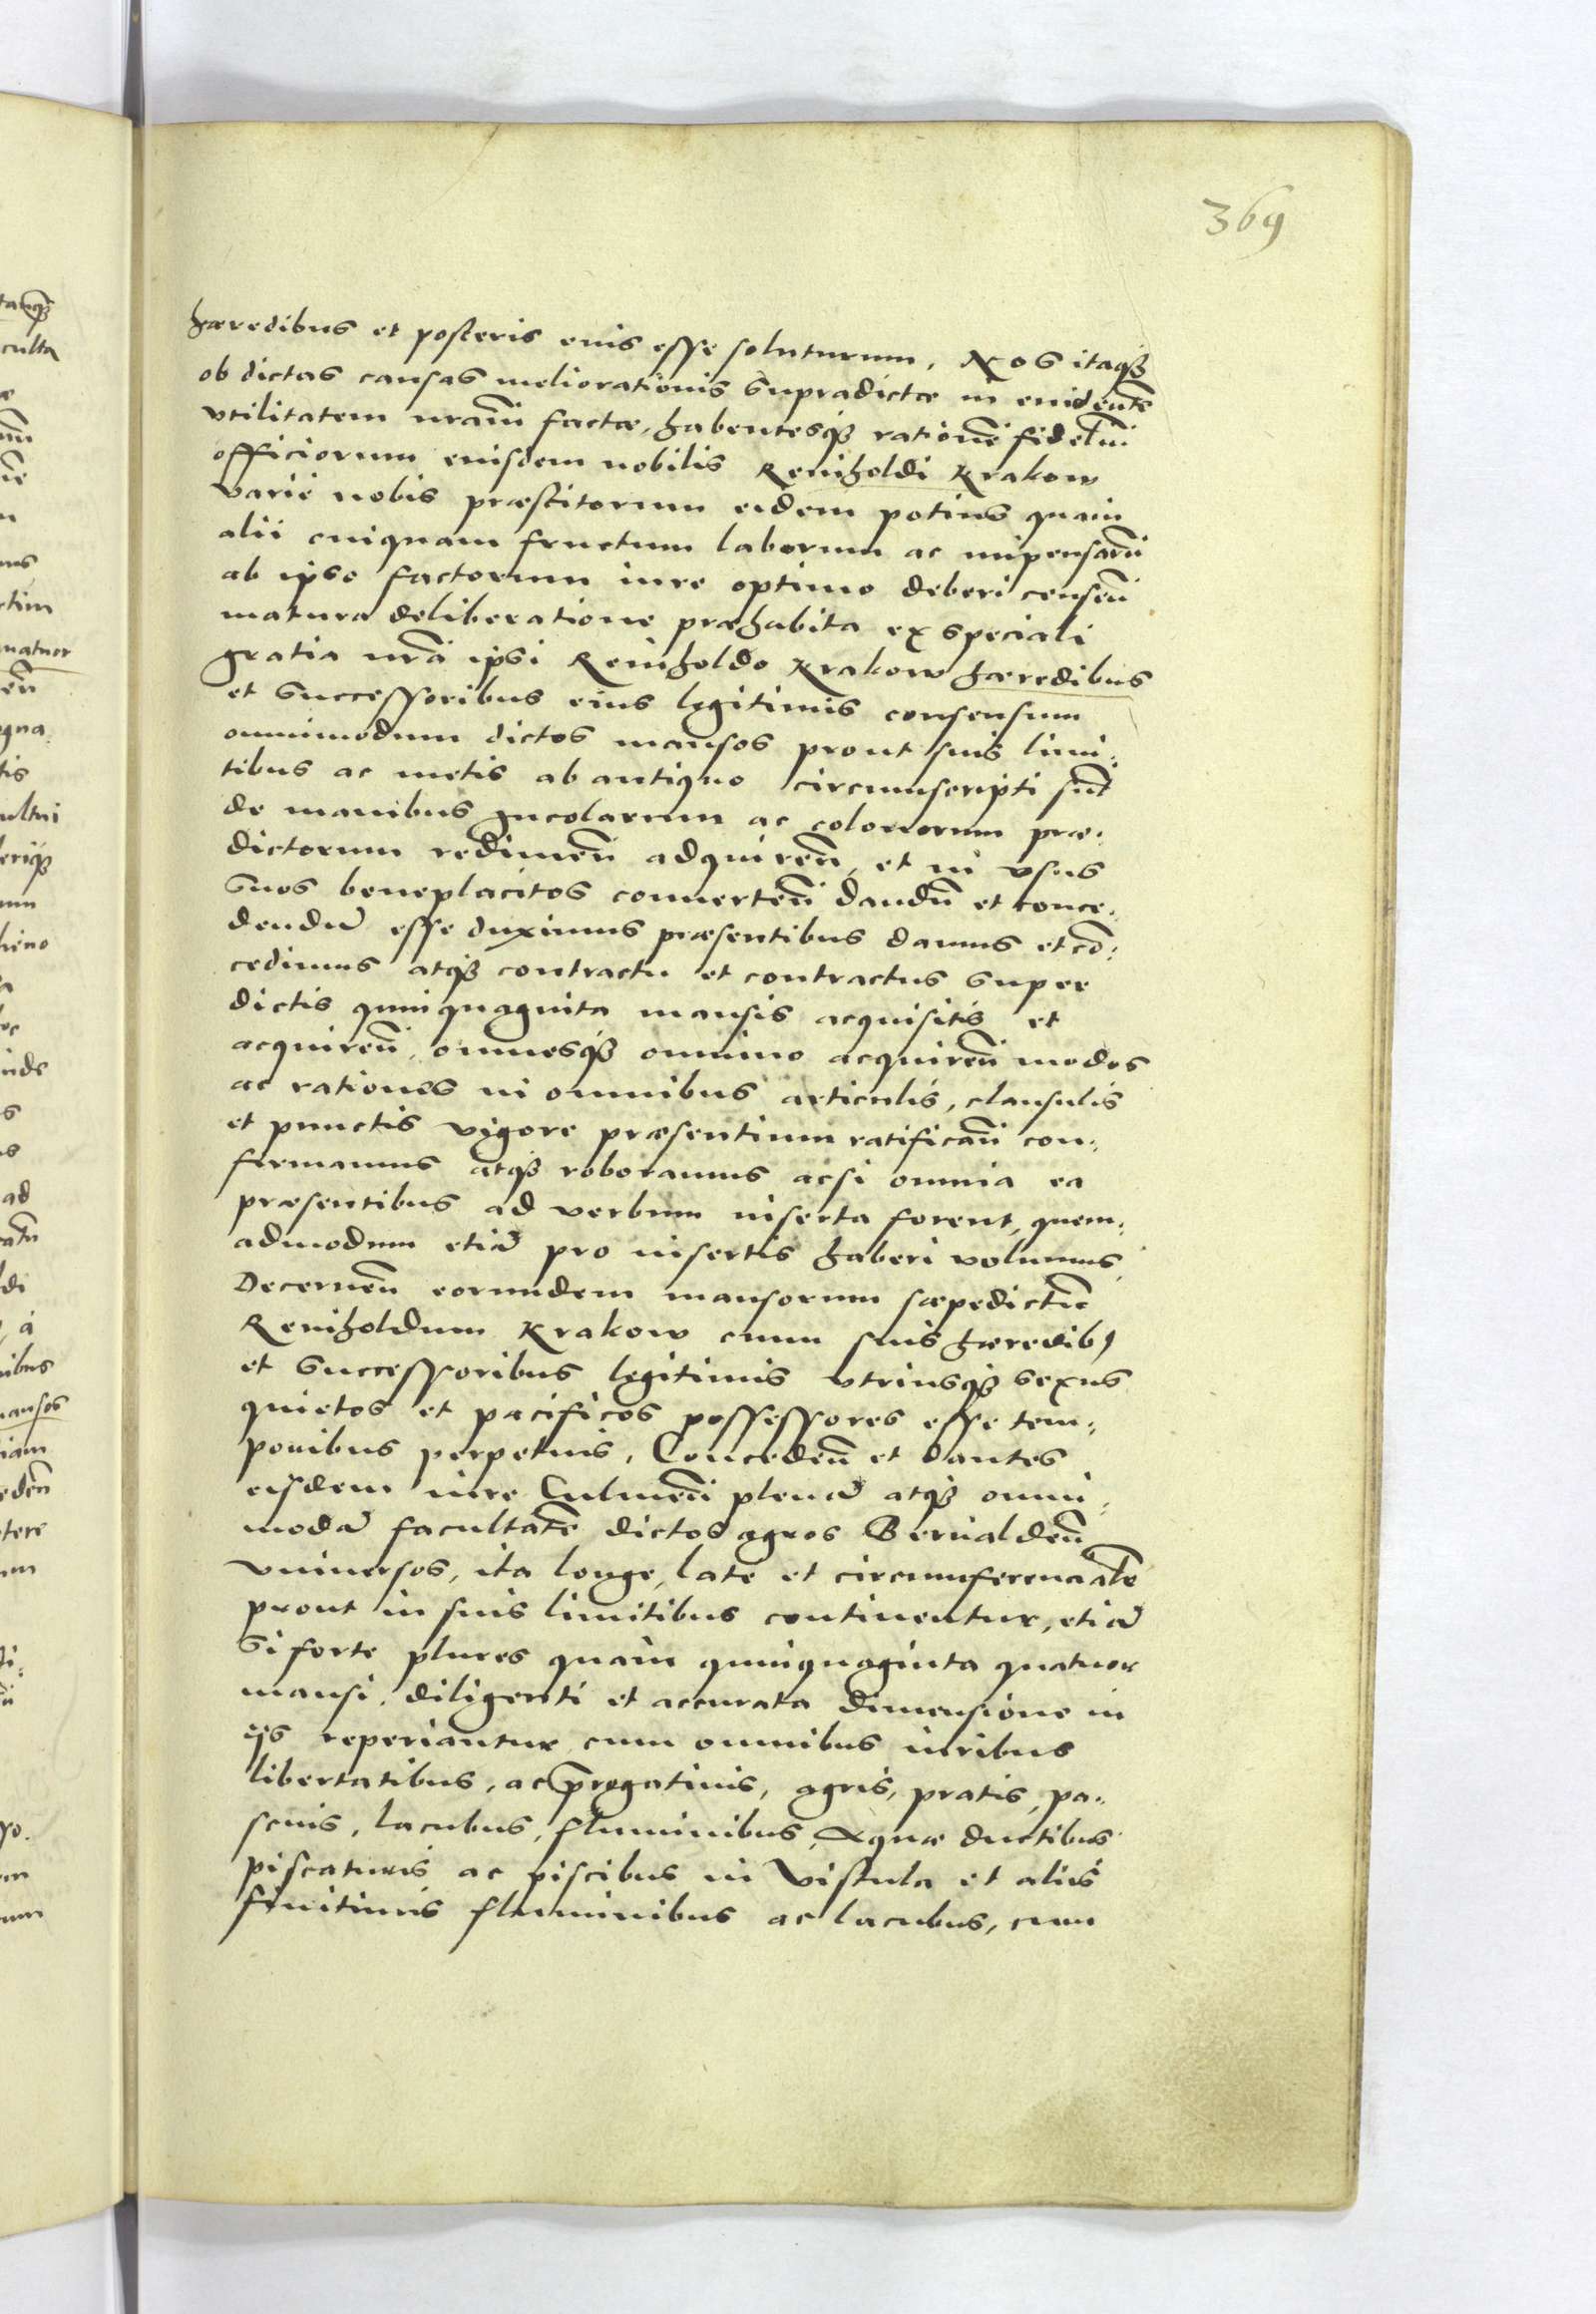 369
hæredibus et posteris euis esse soluturum. Nos itaqȝ
ob dictas causas meliorationis supradictæ in euidentē
vtilitatem nrām factæ, habentesqȝ rationē fideliū
officiorum euisdem nobilis Reinholdi Krakow
varie nobis præstitorum eidem potius quam
alii cuiquam fructum laborum ac impensarū
ab ipso factorum iure optimo deberi censen̄
matura deliberatione præhabita ex speciali
gratia nrā ipsi Reinholdo Krakow hæredibus
et successoribus eius legitimis consensum
omnimodum dictos mansos prout suis limi:
tibus ac metis ab antiquo circumscripti sūt
de manibus Incolarum ac colonorum præ:
dictorum redimen̄ adquiren̄, et in vsus
suos beneplacitos conuerten̄ dandū et conce:
dendū esse duximus præsentibus damus et cō:
cedimus atqȝ contractu et contractus super
dictis quinquaginta mansis acquisitis et
acquiren̄, omnesqȝ omnino acquiren̄ modos
ac rationes in omnibus articulis, clausulis
et punctis vigore præsentium ratifican̄ con:
firmamus atqȝ roboramus acsi omnia ea
præsentibus ad verbum inserta forent, quem:
admodum etiā pro insertis haberi volumus
Decernen̄ eorundem mansorum sæpedictū
Reinholdum Krakow cum suis hæredibȝ
et successoribus legitimis vtriusqȝ sexus
quietos et pacificos possessores esse tem:
poribus perpetuis. Conceden̄ et dantes
eisdem iure Culmen̄ plenā atqȝ omni:
modā facultatē dictos agros Beruualden̄
vniuersos, ita longe, late et circumferencialē
prout in suis limitibus continentur, etiā
si forte plures quam quinquaginta quatuor
mansi, diligenti et accurata dimensione in
ijs reperiantur cum omnibus iuribus
libertatibus, ac p̄rogatiuis, agris, pratis, pa:
scuis, lacubus, fluminibus, Aquæ ductibus
piscaturis ac piscibus in Vistula et aliis
finitimis fluminibus ac lacubus, cum